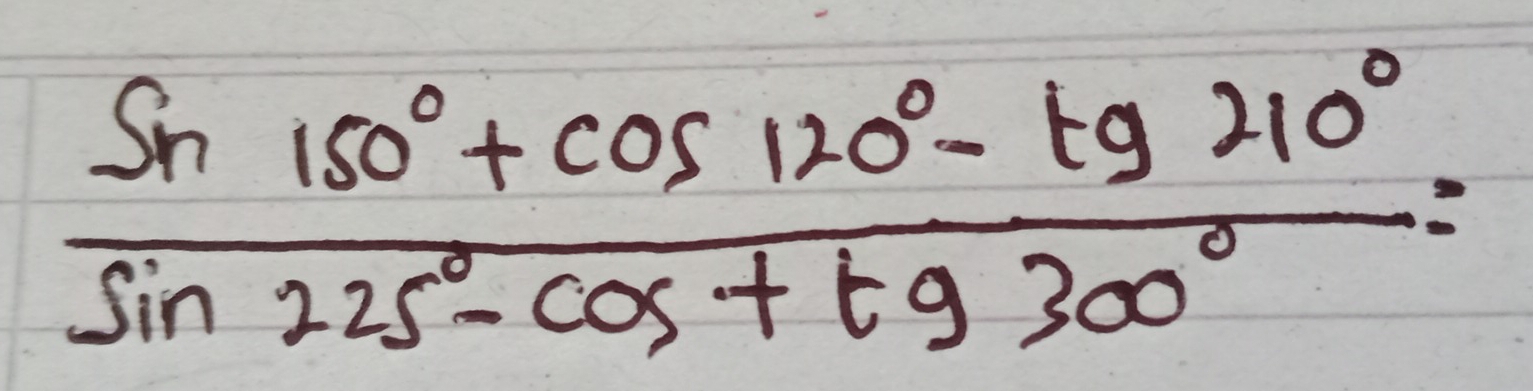 Sn 150° + cos 120° - tg 210°
sin 225° - cos + tg 300° =